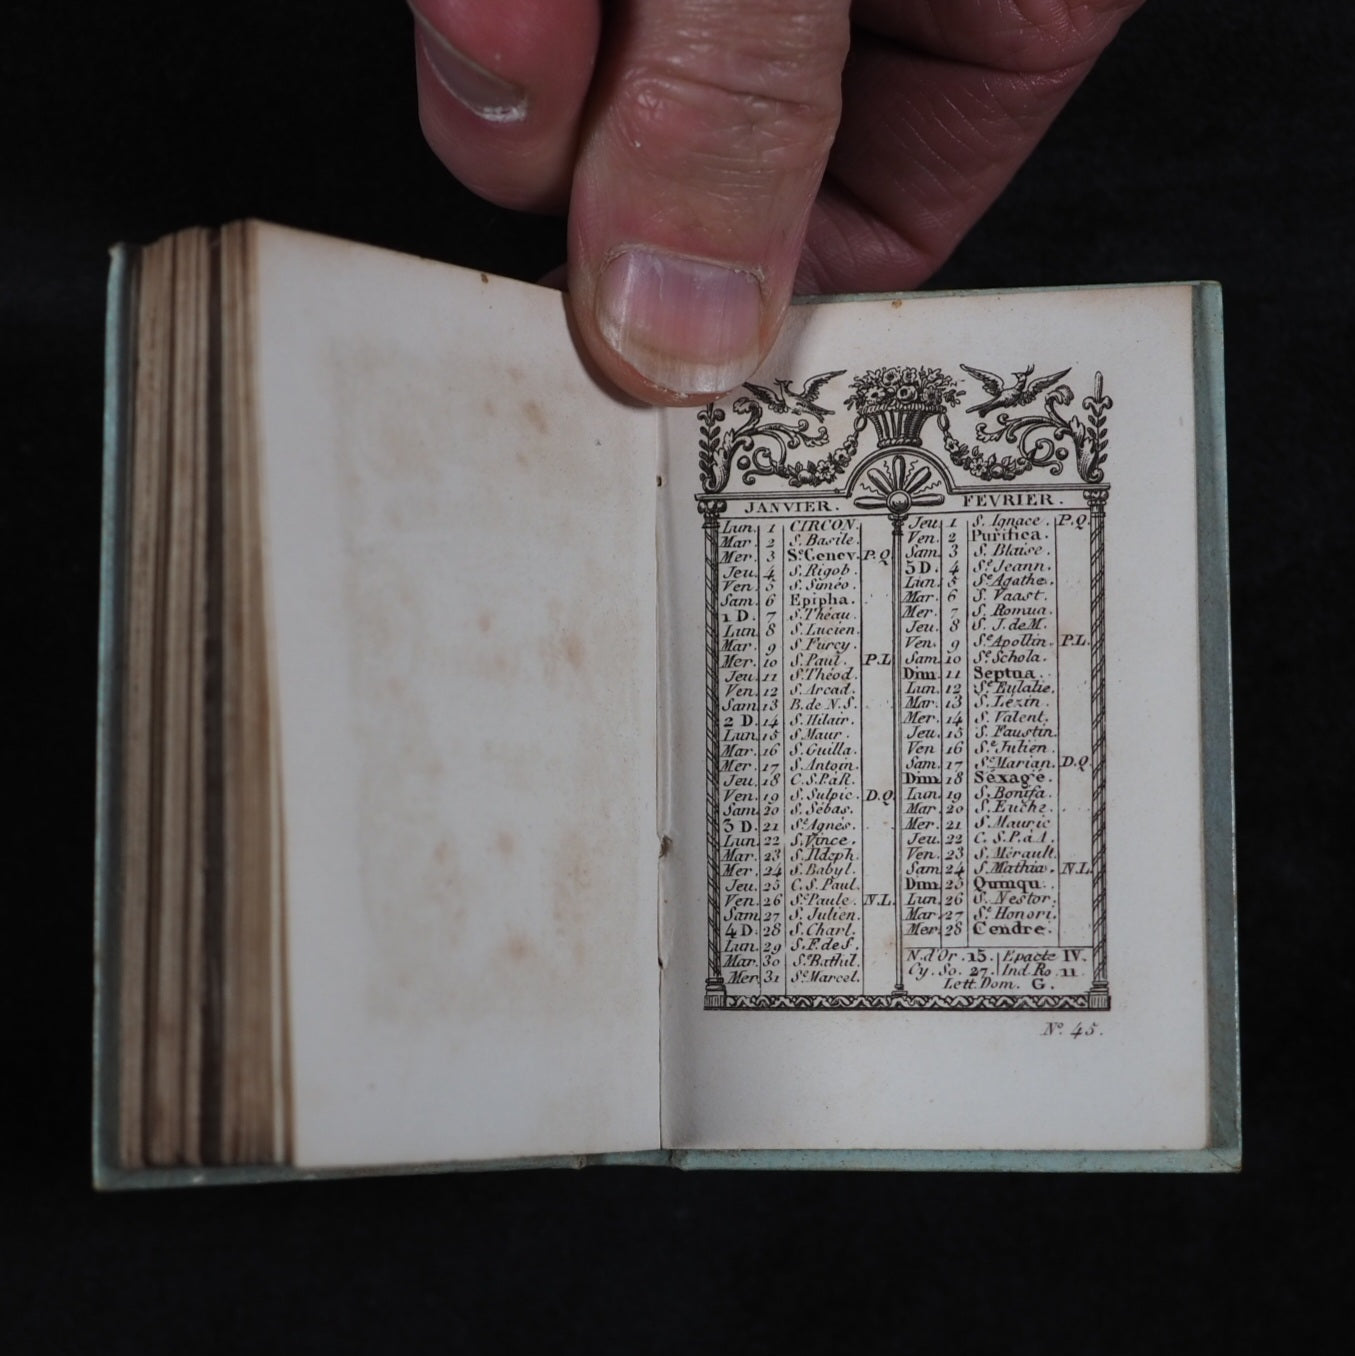 JANVIER.
Lun. 1 CIRCON.
Mar. 2 S. Basile.
Mer. 3 Se Genev. P.Q.
Jeu. 4 S. Rigob.
Ven. 5 S. Siméo.
Sam. 6 Epipha.
1 D. 7 S. Théau.
Lun. 8 S. Lucien.
Mar. 9 S. Furcy.
Mer. 10 S. Paul. P.L.
Jeu. 11 S. Théod.
Ven. 12 S. Arcad.
Sam. 13 B. de N.S.
2 D. 14 S. Hilair.
Lun. 15 S. Maur.
Mar. 16 S. Guilla.
Mer. 17 S. Antoin.
Jeu. 18 C.S.P.à R.
Ven. 19 S. Sulpic. D.Q.
Sam. 20 S. Sébas.
3 D. 21 Se Agnès.
Lun. 22 S. Vince.
Mar. 23 S. Ildeph.
Mer. 24 S. Babyl.
Jeu. 25 C.S. Paul.
Ven. 26 Se Paule. N.L.
Sam. 27 S. Julien.
4 D. 28 S. Charl.
Lun. 29 S.F. de S.
Mar. 30 Se Bathil.
Mer. 31 Se Marcel.
FEVRIER.
Jeu. 1 S. Ignace. P.Q.
Ven. 2 Purifica.
Sam. 3 S. Blaise.
5 D. 4 Se Jeann.
Lun. 5 Se Agathe.
Mar. 6 S. Vaast.
Mer. 7 S. Romua.
Jeu. 8 S. J. de M.
Ven. 9 Se Apollin. P.L.
Sam. 10 Se Schola.
Dim. 11 Septua.
Lun. 12 Se Eulalie.
Mar. 13 S. Lézin.
Mer. 14 S. Valent.
Jeu. 15 S. Faustin.
Ven. 16 Se Julien.
Sam. 17 Se Marian. D.Q.
Dim. 18 Séxagé.
Lun. 19 S. Bonifa.
Mar. 20 S. Euche.
Mer. 21 S. Mauric
Jeu. 22 C. S.P. à A.
Ven. 23 S. Mérault.
Sam. 24 S. Mathia. N.L.
Dim. 25 Quinqu.
Lun. 26 S. Nestor.
Mar. 27 Se Honori.
Mer. 28 Cendre.
N. d'Or. 15. Epacte IV.
Cy. So. 27. Ind. Ro. 11.
Lett. Dom. G.
No. 45.